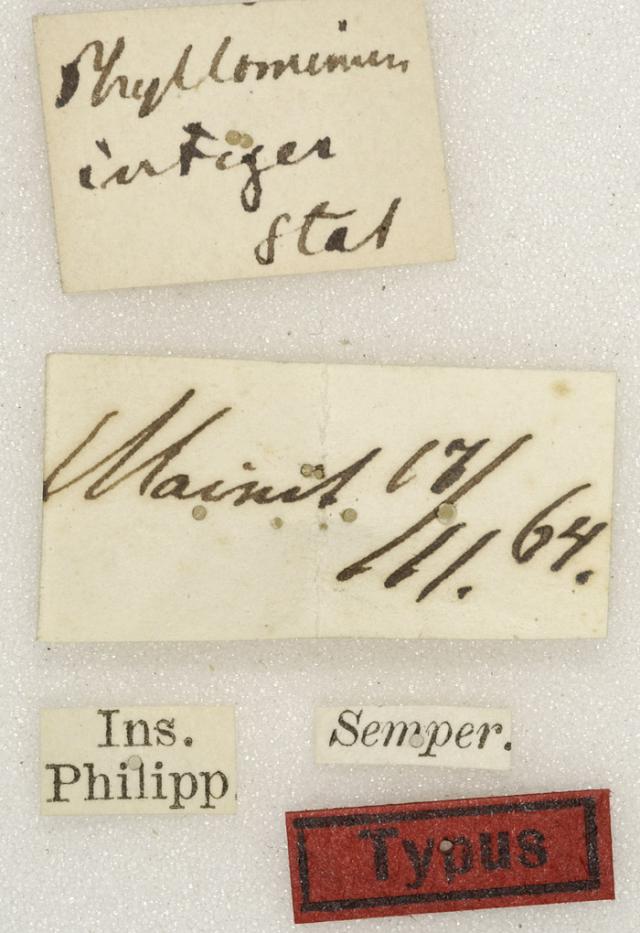 Phyllomimus
integer
Stal
Mainit 17/
III. 64.
Ins.
Philipp.
Semper.
Typus